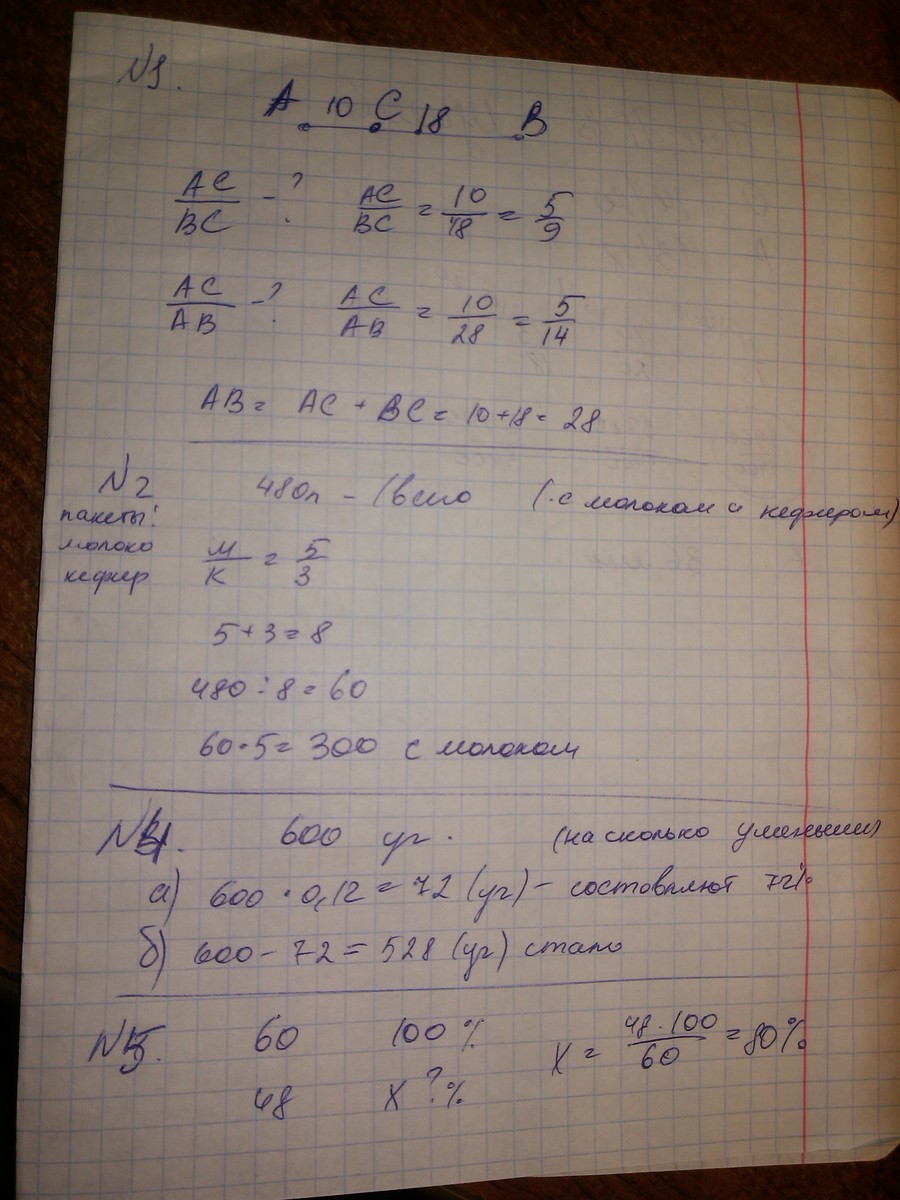 №1.
A 10 C 18 B
AC/BC - ? AC/BC = 10/18 = 5/9
AC/AB - ? AC/AB = 10/28 = 5/14
AB = AC + BC = 10+18 = 28
№2 480л - (всего (с молоком и кефиром)
пакеты:
молоко М/К = 5/3
кефир
5+3=8
480÷8=60
60·5=300 с молоком
№4. 600 уг. (на сколько уменьши)
а) 600·0,12=72 (уг) - составляют
б) 600-72=528 (уг) стало
№5. 60 100% X = 48·100/60 = 80%
48 X ?%